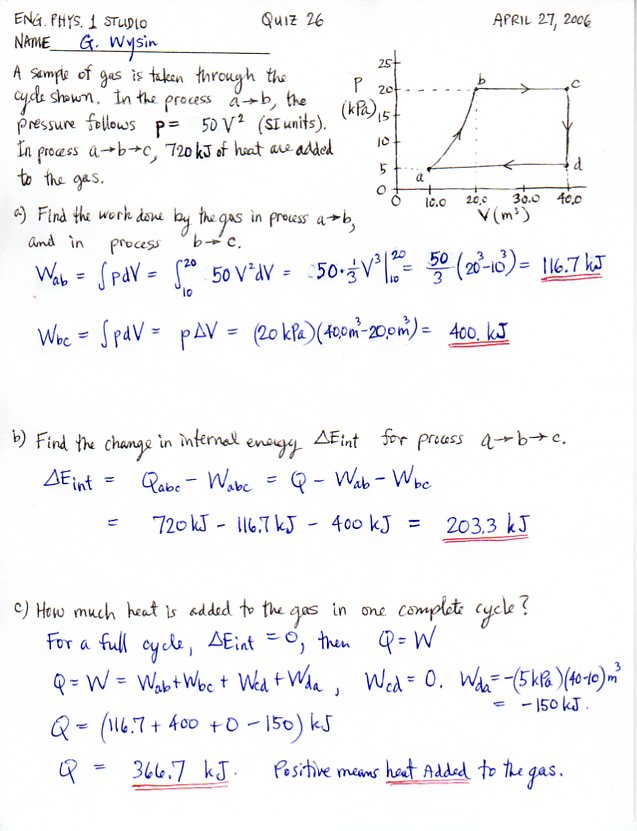 ENG. PHYS. 1 STUDIO QUIZ 26 APRIL 27, 2006
NAME G. Wysin
A sample of gas is taken through the
cycle shown. In the process a→b, the
pressure follows p= 50 V² (SI units).
In process a→b→c, 720 kJ of heat are added
to the gas.
P
(kPa)
25
20
15
10
5
0
0 10.0 20.0 30.0 40.0
V (m³)
a b c d
a) Find the work done by the gas in process a→b,
and in process b→c.
Wab = ∫pdV = ∫₁₀²⁰ 50 V²dV = 50·⅓V³|₁₀²⁰ = 50/3 (20³-10³) = 116.7 kJ
Wbc = ∫pdV = pΔV = (20 kPa)(40.0m³-20.0m³) = 400. kJ
b) Find the change in internal energy ΔEint for process a→b→c.
ΔEint = Qabc - Wabc = Q - Wab - Wbc
= 720 kJ - 116.7 kJ - 400 kJ = 203.3 kJ
c) How much heat is added to the gas in one complete cycle?
For a full cycle, ΔEint = 0, then Q = W
Q = W = Wab + Wbc + Wcd + Wda , Wcd = 0. Wda = -(5 kPa)(40-10) m³
= -150 kJ.
Q = (116.7 + 400 + 0 - 150) kJ
Q = 366.7 kJ. Positive means heat Added to the gas.